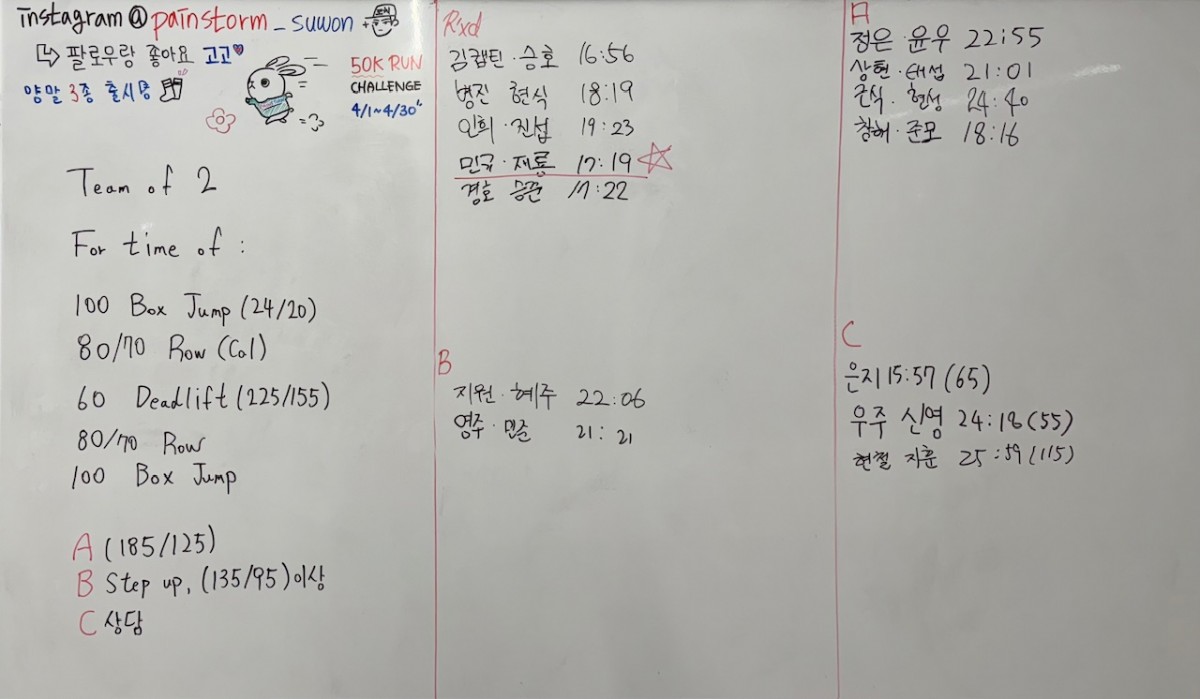 instagram@painstorm_suwon
↳ 팔로우랑 좋아요 고고♥
양말 3종 출시중
50K RUN
CHALLENGE
4/1~4/30
Team of 2
For time of :
100 Box Jump (24/20)
80/70 Row (Cal)
60 Deadlift (225/155)
80/70 Row
100 Box Jump
A (185/125)
B Step up, (135/95)이상
C 상담
Rxd
김캡틴·승호 16:56
병진 현식 18:19
인희·진섭 19:23
민규·재룡 17:19
경호 승준 17:22
B
지원·혜주 22:06
영주·민준 21:21
A
정은·윤우 22:55
상현·태섭 21:01
근식·현성 24:40
창해·준모 18:16
C
은지 15:57 (65)
우주 신영 24:18 (55)
현철 지훈 25:59 (115)